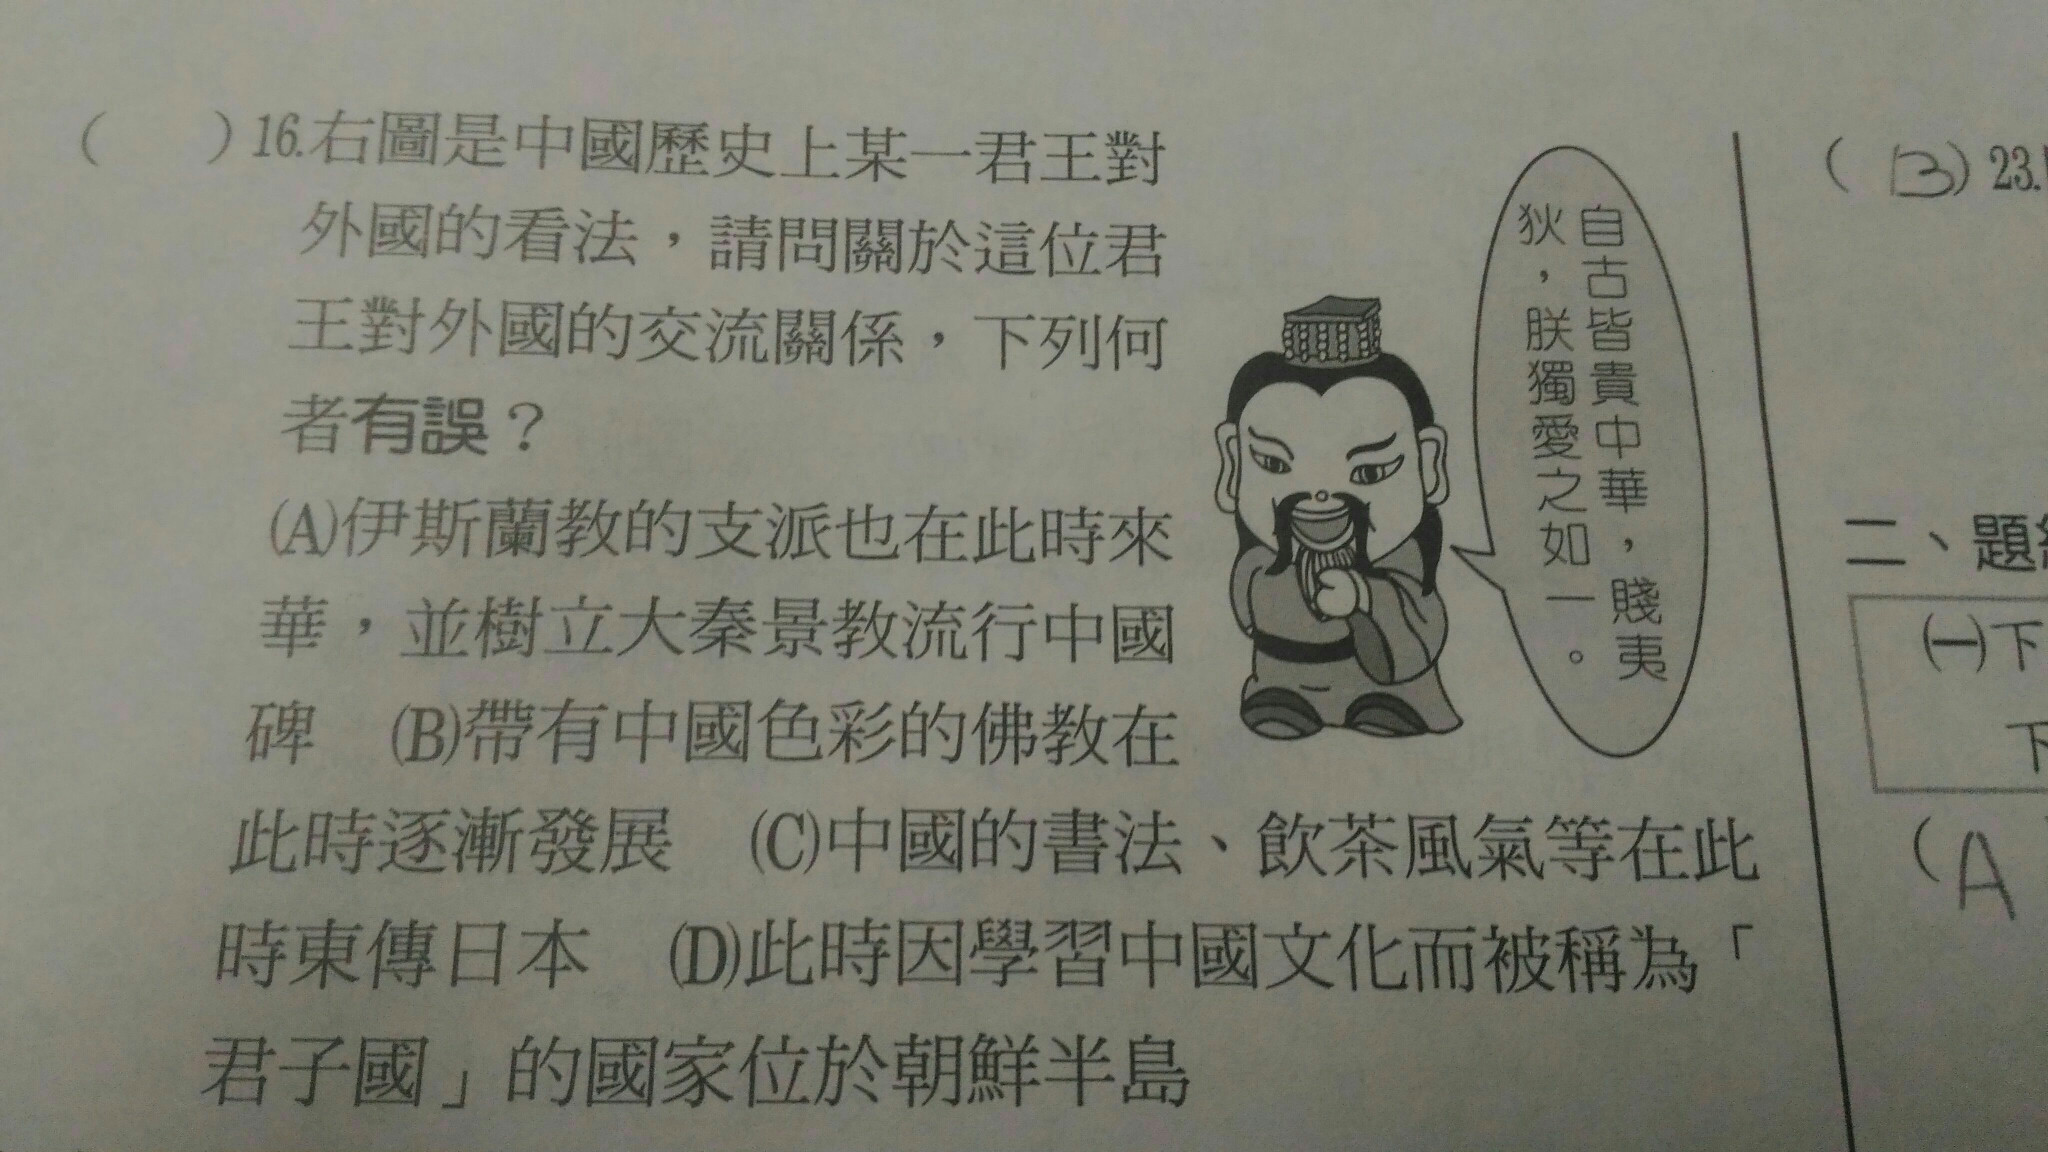 (　)16.右圖是中國歷史上某一君王對
外國的看法，請問關於這位君
王對外國的交流關係，下列何
者有誤？
(A)伊斯蘭教的支派也在此時來
華，並樹立大秦景教流行中國
碑　(B)帶有中國色彩的佛教在
此時逐漸發展　(C)中國的書法、飲茶風氣等在此
時東傳日本　(D)此時因學習中國文化而被稱為「
君子國」的國家位於朝鮮半島
自古皆貴中華，賤夷
狄，朕獨愛之如一。
(B)23.
二、題
(一)下
下
(A